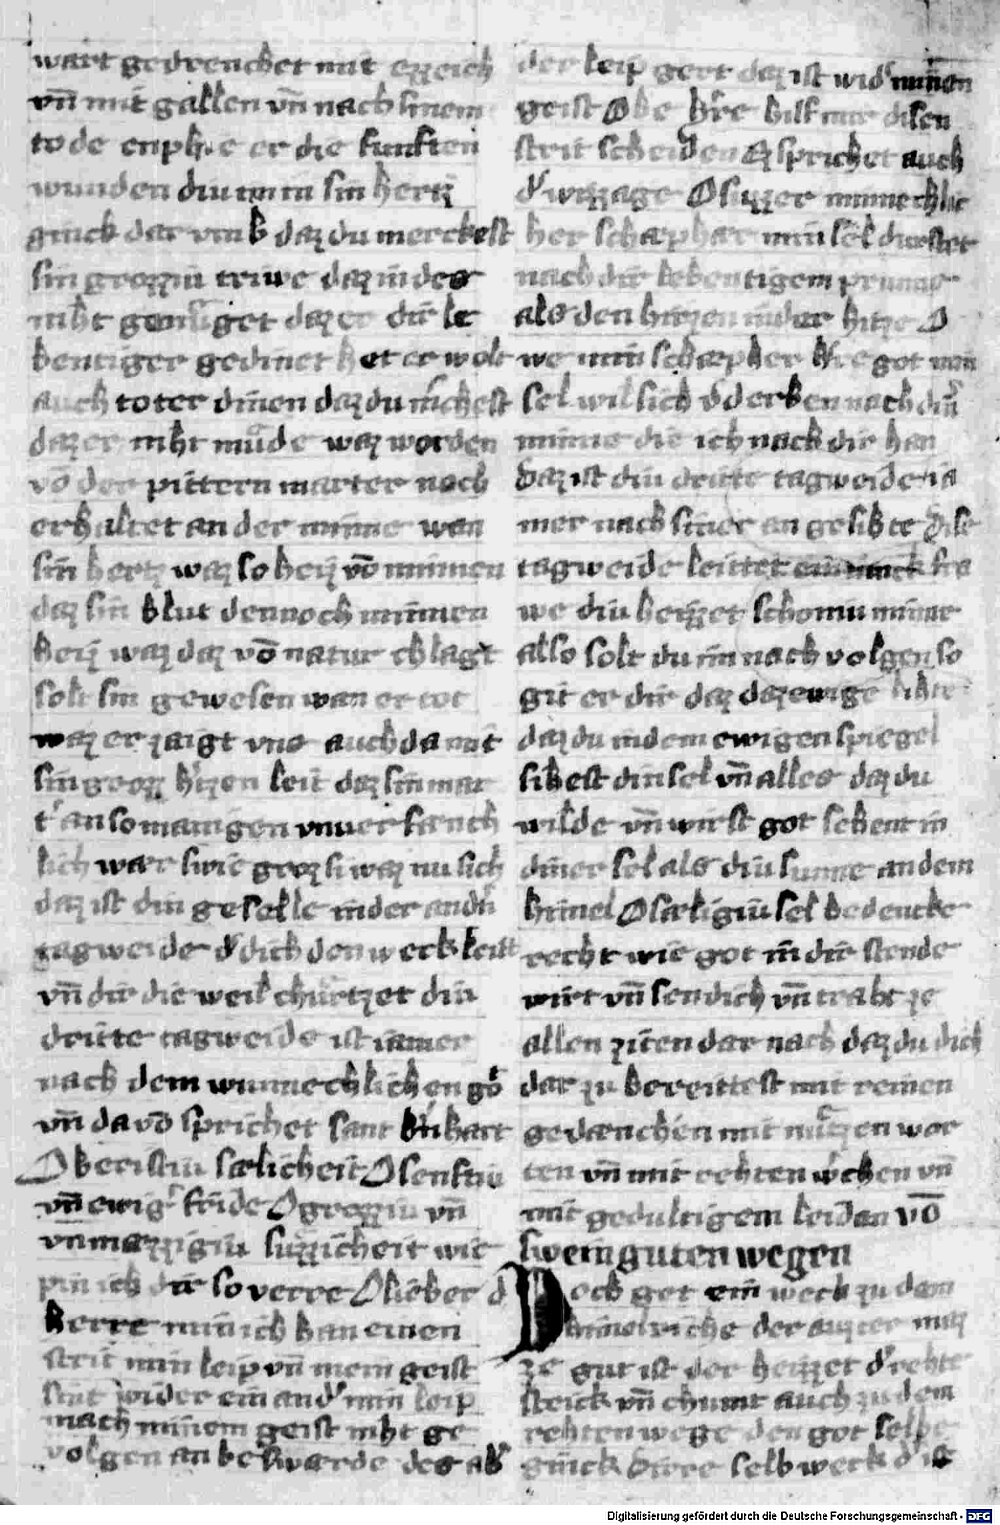 wart gedrencket mit ezzeich
vn̄ mit gallen vn̄ nach sinem
tode enphie er die funften
wunden diu im in sin hertz
gienck dar vmb daz du merckest
sin grozziu triwe daz in des
niht genuͤget daz er dir le
bentiger gedinet het er wolt
auch toter dinen daz du sichest
daz er niht muͤde waz worden
vō der pittern marter noch
erkaltet an der minne wan
sin hertz waz so heiz vō minnen
daz sin blut dennoch minnen
heiz waz daz vō natur chlagt
solt sin gewesen wan er tot
waz er zaigt vns auch da mit
sin groz h'tzen leit daz sin mar
t' an so manigen vnuerfænch
lich war swie groz si waz nu sich
daz ist din geselle in der andn̄
tagweide d' dich den weck leitt
vn̄ dir die weil chuͤrtzet diu
dritte tagweide ist iamer
nach dem wunnechlichen got
vn̄ da vō sprichet sant b'nhart
O beristiu sælicheit O senftiu
vn̄ ewig' fride O grozziu vn̄
vnmazzigiu suzzicheit wie
pin ich dir so verre O lieber
herre min ich han einen
strit min leip vn̄ mein geist
sint wider ein and' min leip
mach minem geist niht ge
volgen an beswærde des ab'
der leip gert daz ist wid' minen
geist O be h're hilf mir disen
strit scheiden Ez sprichet auch
d' wizzage O suzzer minnechlic
her schæpher min sel durstet
nach dir lebentigem prunne
als den hirzen in der hitze O
we min schæpher h're got min
sel wil sich v'derben nach din'
minne die ich nach dir han
Daz ist diu dritte tagweide ia
mer nach siner angesihte Dise
tagweide leittet fra
we diu heizzet schoniu minne
also solt du im nach volgen so
git er dir daz daz ewige lihte
daz du in dem ewigen spiegel
sihest din sel vn̄ alles daz du
wilde vn̄ wirst got sehent in
diner sel als diu sunne an dem
himel O sæligiu sel bedencke
recht wie got in dir stende
wirt vn̄ sen dich vn̄ traht ze
allen ziten dar nach daz du dich
dar zu bereittest mit reinen
gedænchen mit nuͤtzen wor
ten vn̄ mit rehten w'chen vn̄
mit gedultigem leiden vō
swein guten wegen
Doch get ein weck zu dem
himelriche der auzzer maz
ze gut ist der heizzet d' rehte
steick vn̄ chumt auch zu dem
rehten wege den got selbe
gienck selb weck d' ist
Digitalisierung gefördert durch die Deutsche Forschungsgemeinschaft - DFG